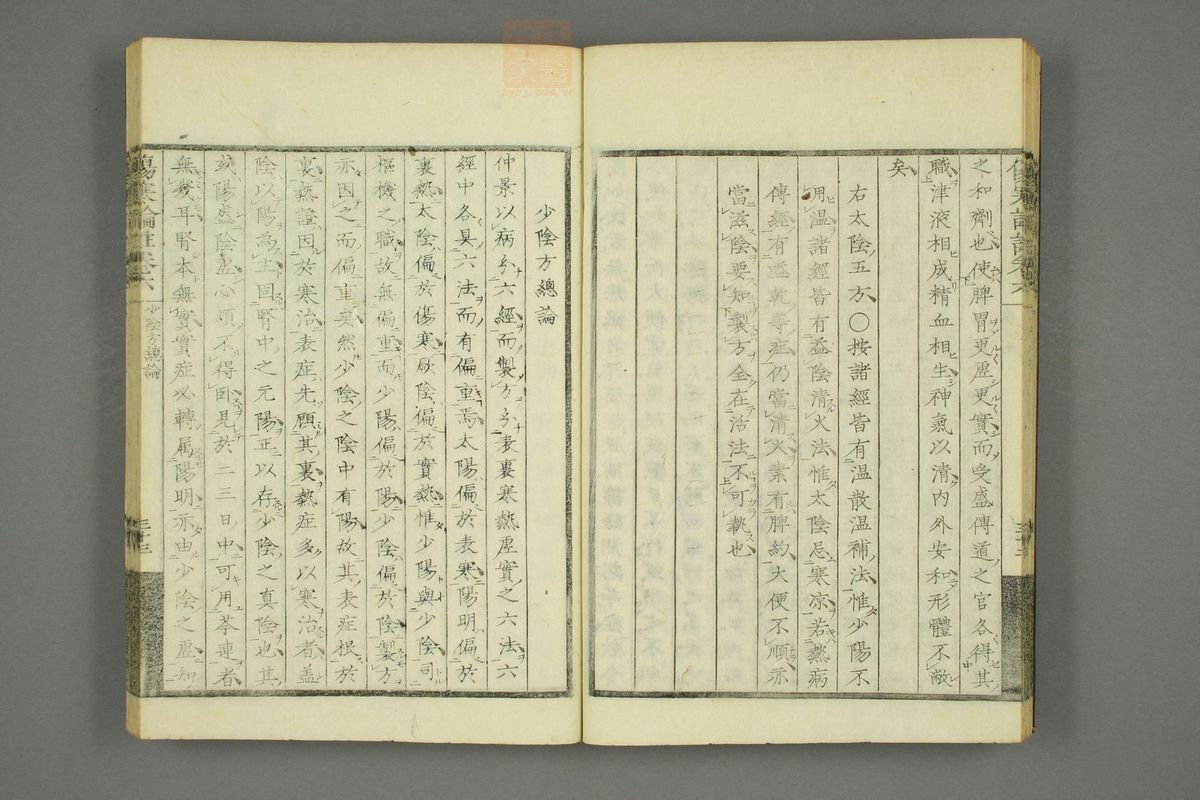 之和劑也使脾胃更虛更實而受盛傳道之官各得其
職津液相成精血相生神氣以清内外安和形體不敝
矣
右太陰五方○按諸經皆有温散温補法惟少陽不
用温諸經皆有益陰清火法惟太陰忌寒凉若熱病
傳經有嗌乾等症仍當清火業有脾約大便不順亦
當滋陰要知製方全在活法不可執也
少陰方總論
仲景以病分六經而製方分表裏寒熱虛實之六法六
經中各具六法而有偏重焉太陽偏於表寒陽明偏於
裏熱太陰偏於傷寒厥陰偏於實熱惟少陽與少陰司
樞機之職故無偏重而少陽偏於陽少陰偏於陰製方
亦因之而偏重矣然少陰之陰中有陽故其表症根於
裏熱證因於寒治表症先顧其裏熱症多以寒治者盖
陰以陽為主固腎中之元陽正以存少陰之真陰也其
或陽盛陰虛心煩不得卧見於二三日中可用芩連者
無幾耳腎本無實實症必轉属陽明亦由少陰之虛知
傷寒論註卷六
少陰方總論